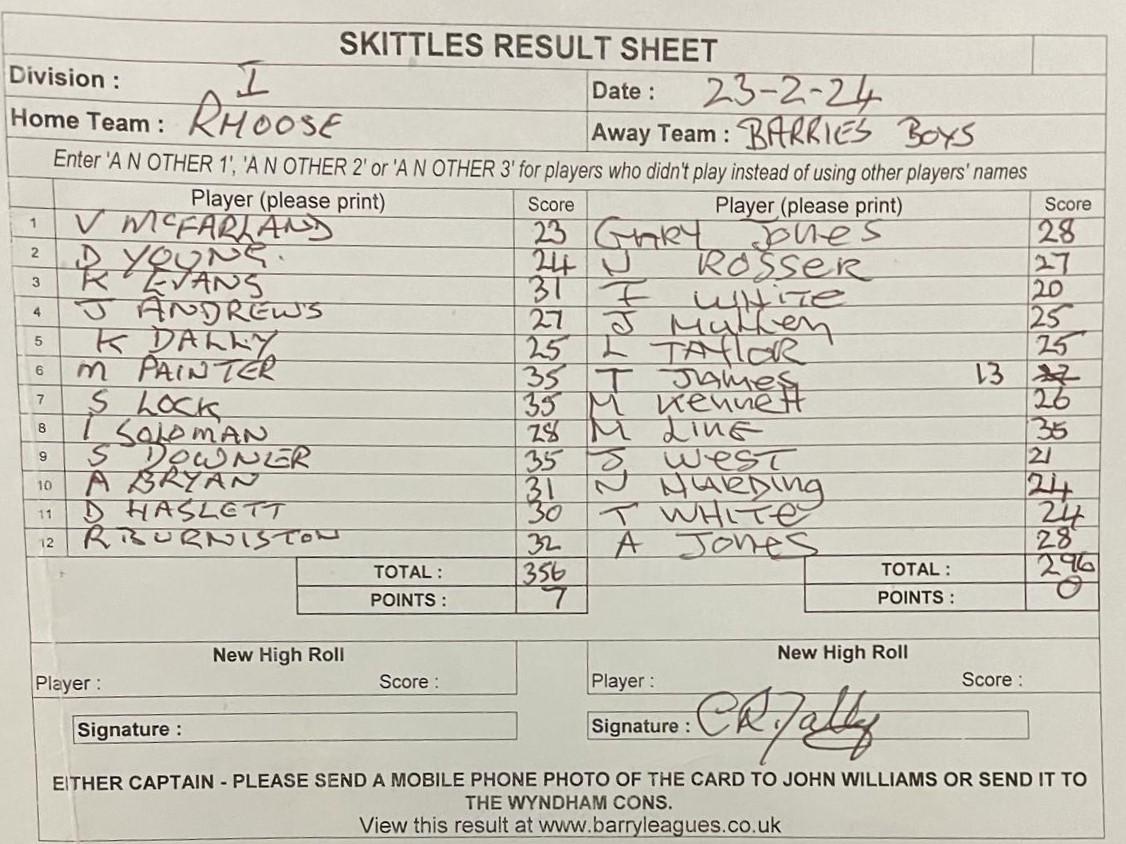 SKITTLES RESULT SHEET
Division : I Date : 23-2-24
Home Team : RHOOSE Away Team : BARRIES BOYS
Enter 'A N OTHER 1', 'A N OTHER 2' or 'A N OTHER 3' for players who didn't play instead of using other players' names
Player (please print) Score Player (please print) Score
1 V MCFARLAND 23 GARY Jones 28
2 D YOUNG. 24 N ROSSER 27
3 K EVANS 31 F WHITE 20
4 J ANDREWS 27 J Mullen 25
5 K DALLY 25 L TAYLOR 25
6 M PAINTER 35 T James 13
7 S LOCK 35 M Kennett 26
8 I SOLOMAN 28 M LINE 35
9 S DOWNER 35 J WEST 21
10 A BRYAN 31 N HARDING 24
11 D HASLETT 30 T WHITE 24
12 R BURNISTON 32 A Jones 28
TOTAL : 356 TOTAL : 296
POINTS : 7 POINTS : 0
New High Roll New High Roll
Player : Score : Player : Score :
Signature : Signature :
EITHER CAPTAIN - PLEASE SEND A MOBILE PHONE PHOTO OF THE CARD TO JOHN WILLIAMS OR SEND IT TO
THE WYNDHAM CONS.
View this result at www.barryleagues.co.uk